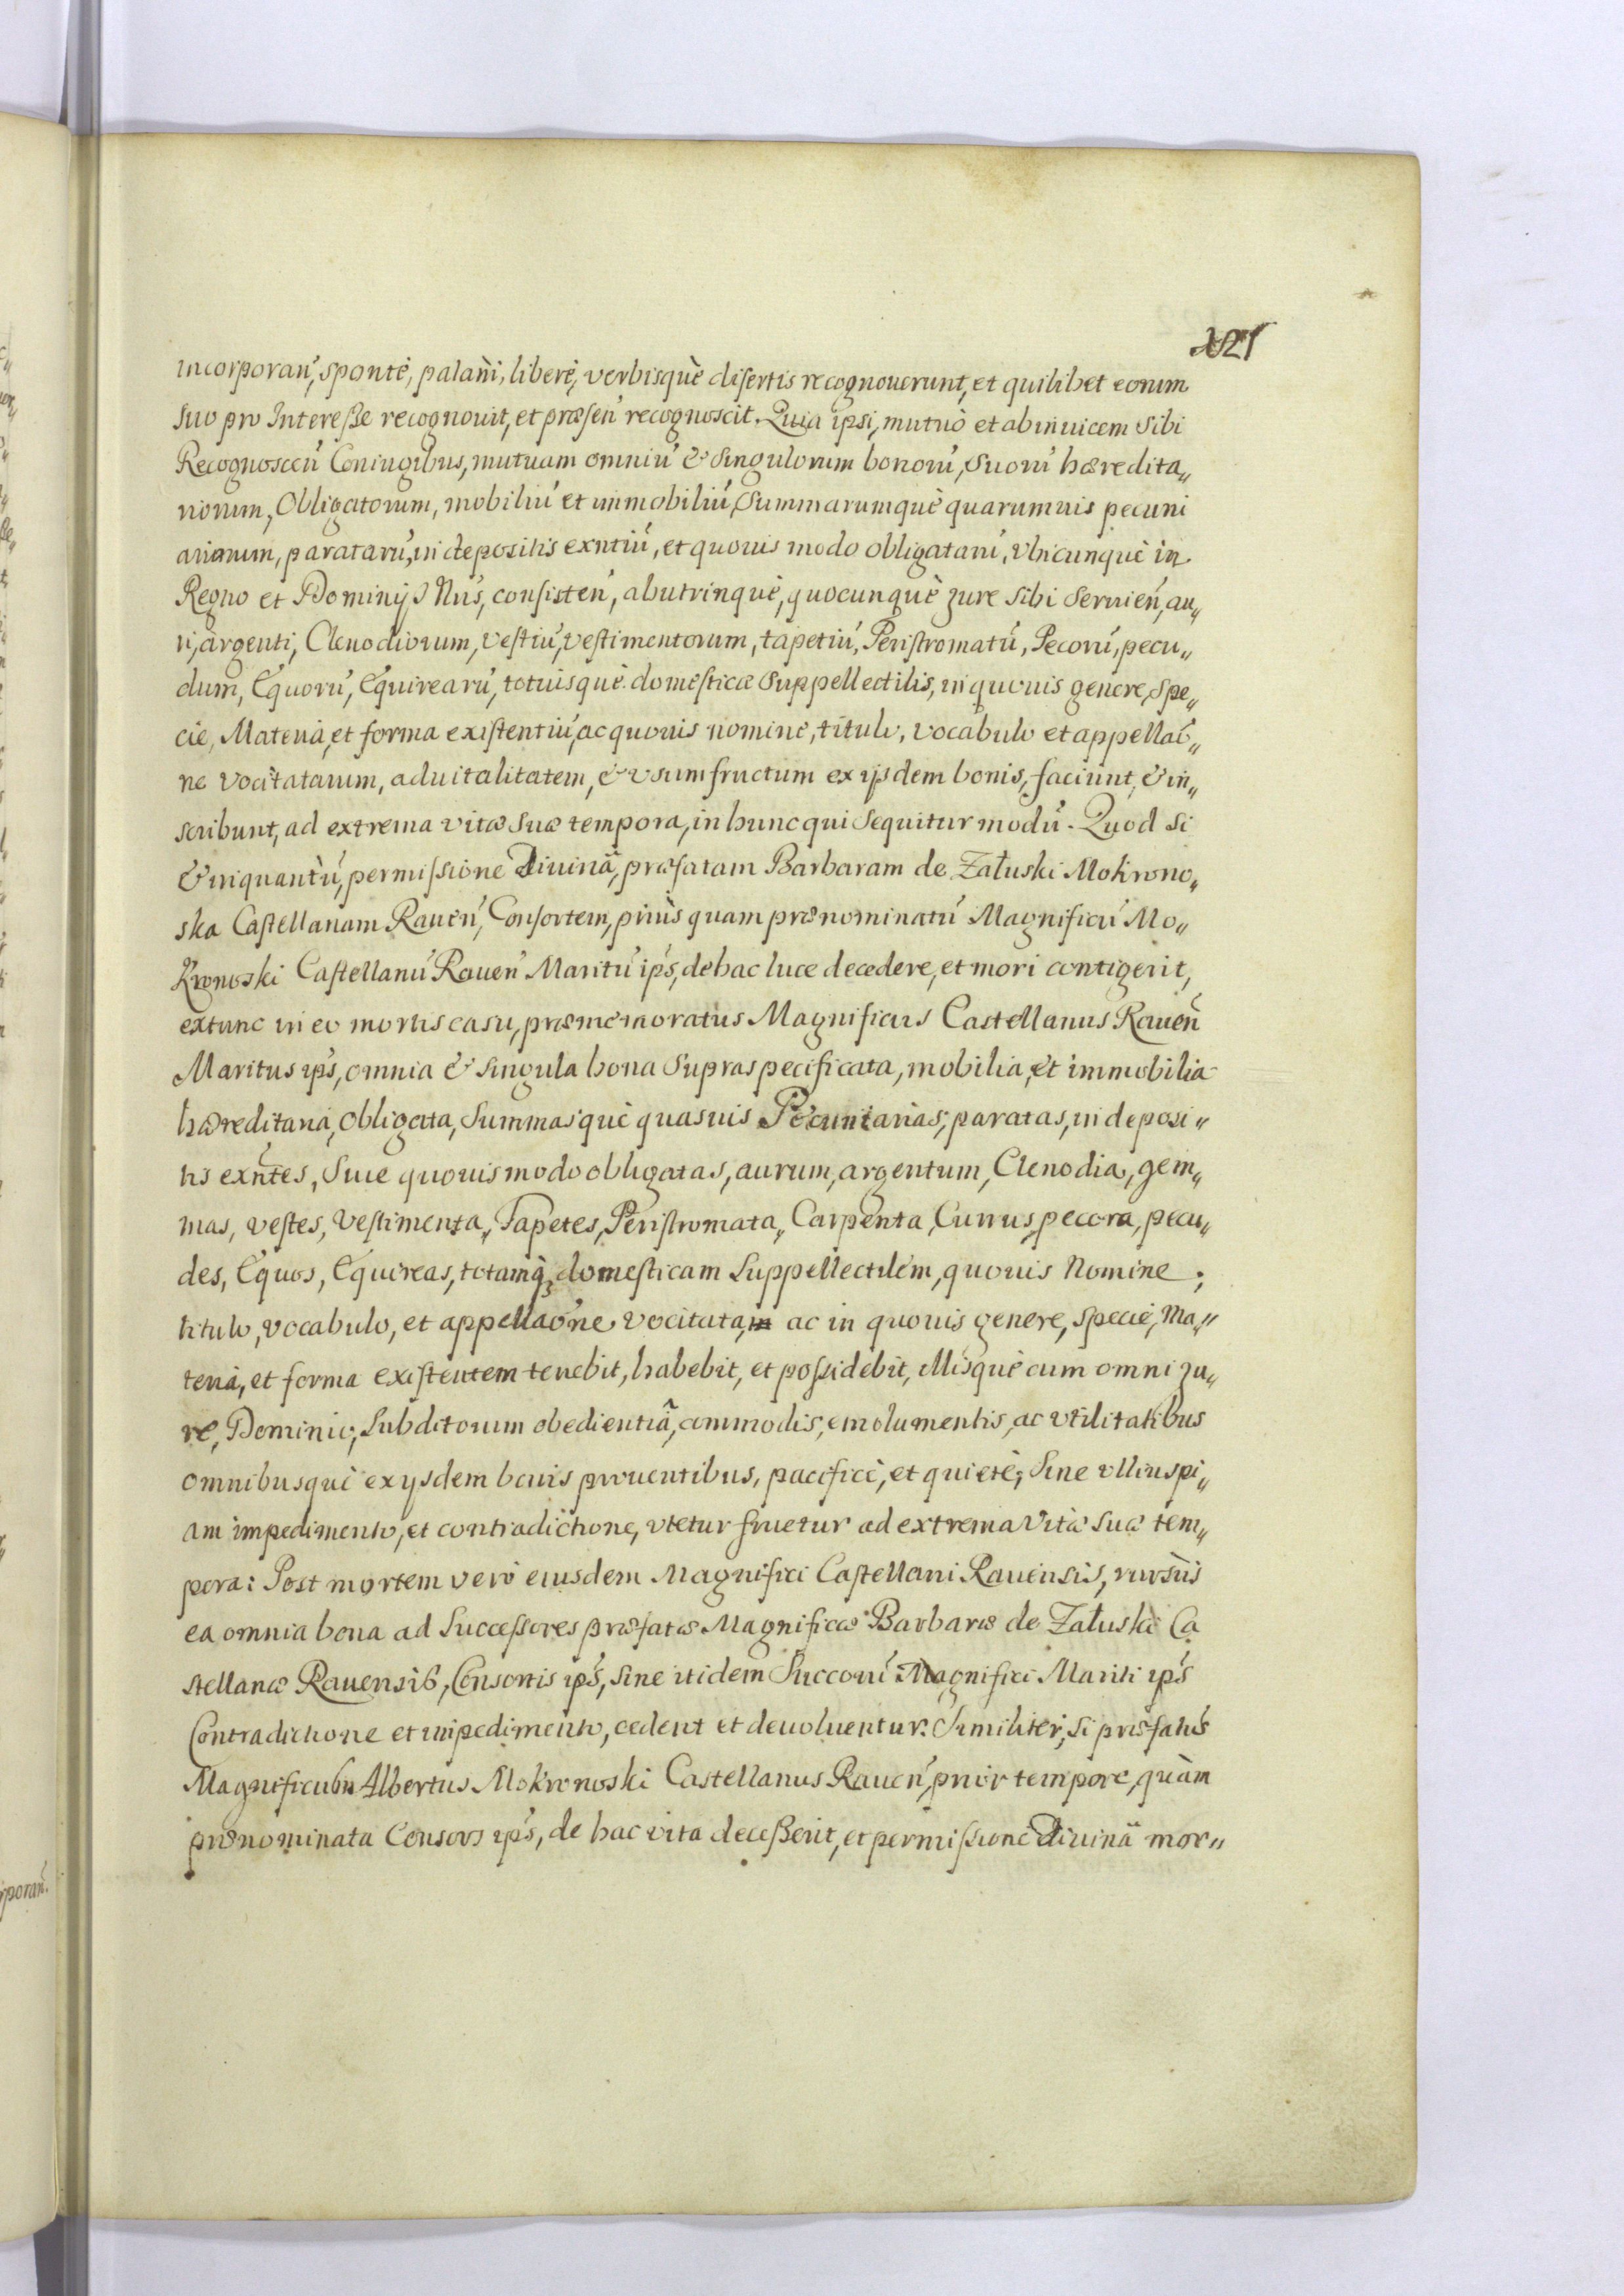 incorporań, spontè, palàm, liberè, verbisquè disertis recognouerunt, et quilibet eorum
suo pro Interesse recognouit, et præseń recognoscit. Quia ipsi, mutuò et abinuicem sibi
Recognosceń Coniugibus, mutuam omniú & singulorum bonorú, suorú hæredita„
riorum, Obligatorum, mobiliú et immobiliú, summarumquè quarumuis pecuni
ariarum, parataru, in depositis exntiú, et quouis modo obligatarú, vbicunquè in
Regno et Dominijs Nris, consisteń, abutrinquè, quocunquè jure sibi seruień, au„
ri, argenti, Clenodiorum, vestiú, vestimentorum, tapetiú, Peristromatú, Pecorú, pecu„
dum, Equorú, Equirearú, totiusquè domesticæ suppellectilis, in quouis genere, spe„
cie, Materia, et forma existentiú, ac quouis nomine, titulo, vocabulo et appellaó„
ne vocitatarum, aduitalitatem, & vsumfructum ex ijsdem bonis, faciunt, & in„
scribunt, ad extrema vitæ suæ tempora, in hunc qui sequitur modú. Quod si
& inquantú, permissione Diuinâ, præfatam Barbaram de Załuski Mokrono„
ska Castellanam Raueń, Consortem, priùs quam prænominatú Magnificú Mo„
kronoski Castellanú Raueń Maritú ips, de hac luce decedere, et mori contigerit,
extunc in eo mortis casu, præmemoratus Magnificus Castellanus Raueń
Maritus ips, omnia & singula bona supraspecificata, mobilia, et immobilia
hæreditaria, obligata, summasquè quasuis Pecuniarias, paratas, in deposi„
tis exntes, siue quouis modo obligatas, aurum, argentum, Clenodia, gem„
mas, vestes, vestimenta, Tapetes, Peristromata, Carpenta, Currus, pecora, pecu„
des, Equos, Equireas, totamq, domesticam suppellectilem, quouis Nomine,
titulo, vocabulo, et appellaóne vocitatam ac in quouis genere, specie, Ma„
teria, et forma existentem tenebit, habebit, et possidebit, illisquè cum omni ju„
re, Dominio, subditorum obedientiâ, commodis, emolumentis, ac vtilitatibus
omnibusquè ex ysdem bonis prouentibus, pacificè, et quietè, sine vlliuspi„
am impedimento, et contradictione, vtetur fruetur ad extrema vitæ suæ tem„
pora: Post mortem verò eiusdem Magnifici Castellani Rauensis, rursùs
ea omnia bona ad successores præfatæ Magnificæ Barbaræ de Załuski Ca
stellanæ Rauensis, Consortis ips, sine itidem Succorú Magnifici Mariti ips
Contradictione et impedimento, cedent et deuoluentur. Similiter, si præfatus
Magnificus Albertus Mokronoski Castellanus Raueń, prior tempore, quàm
prænominata Consors ips, de hac vita decesserit, et permissione Diuinâ mor„